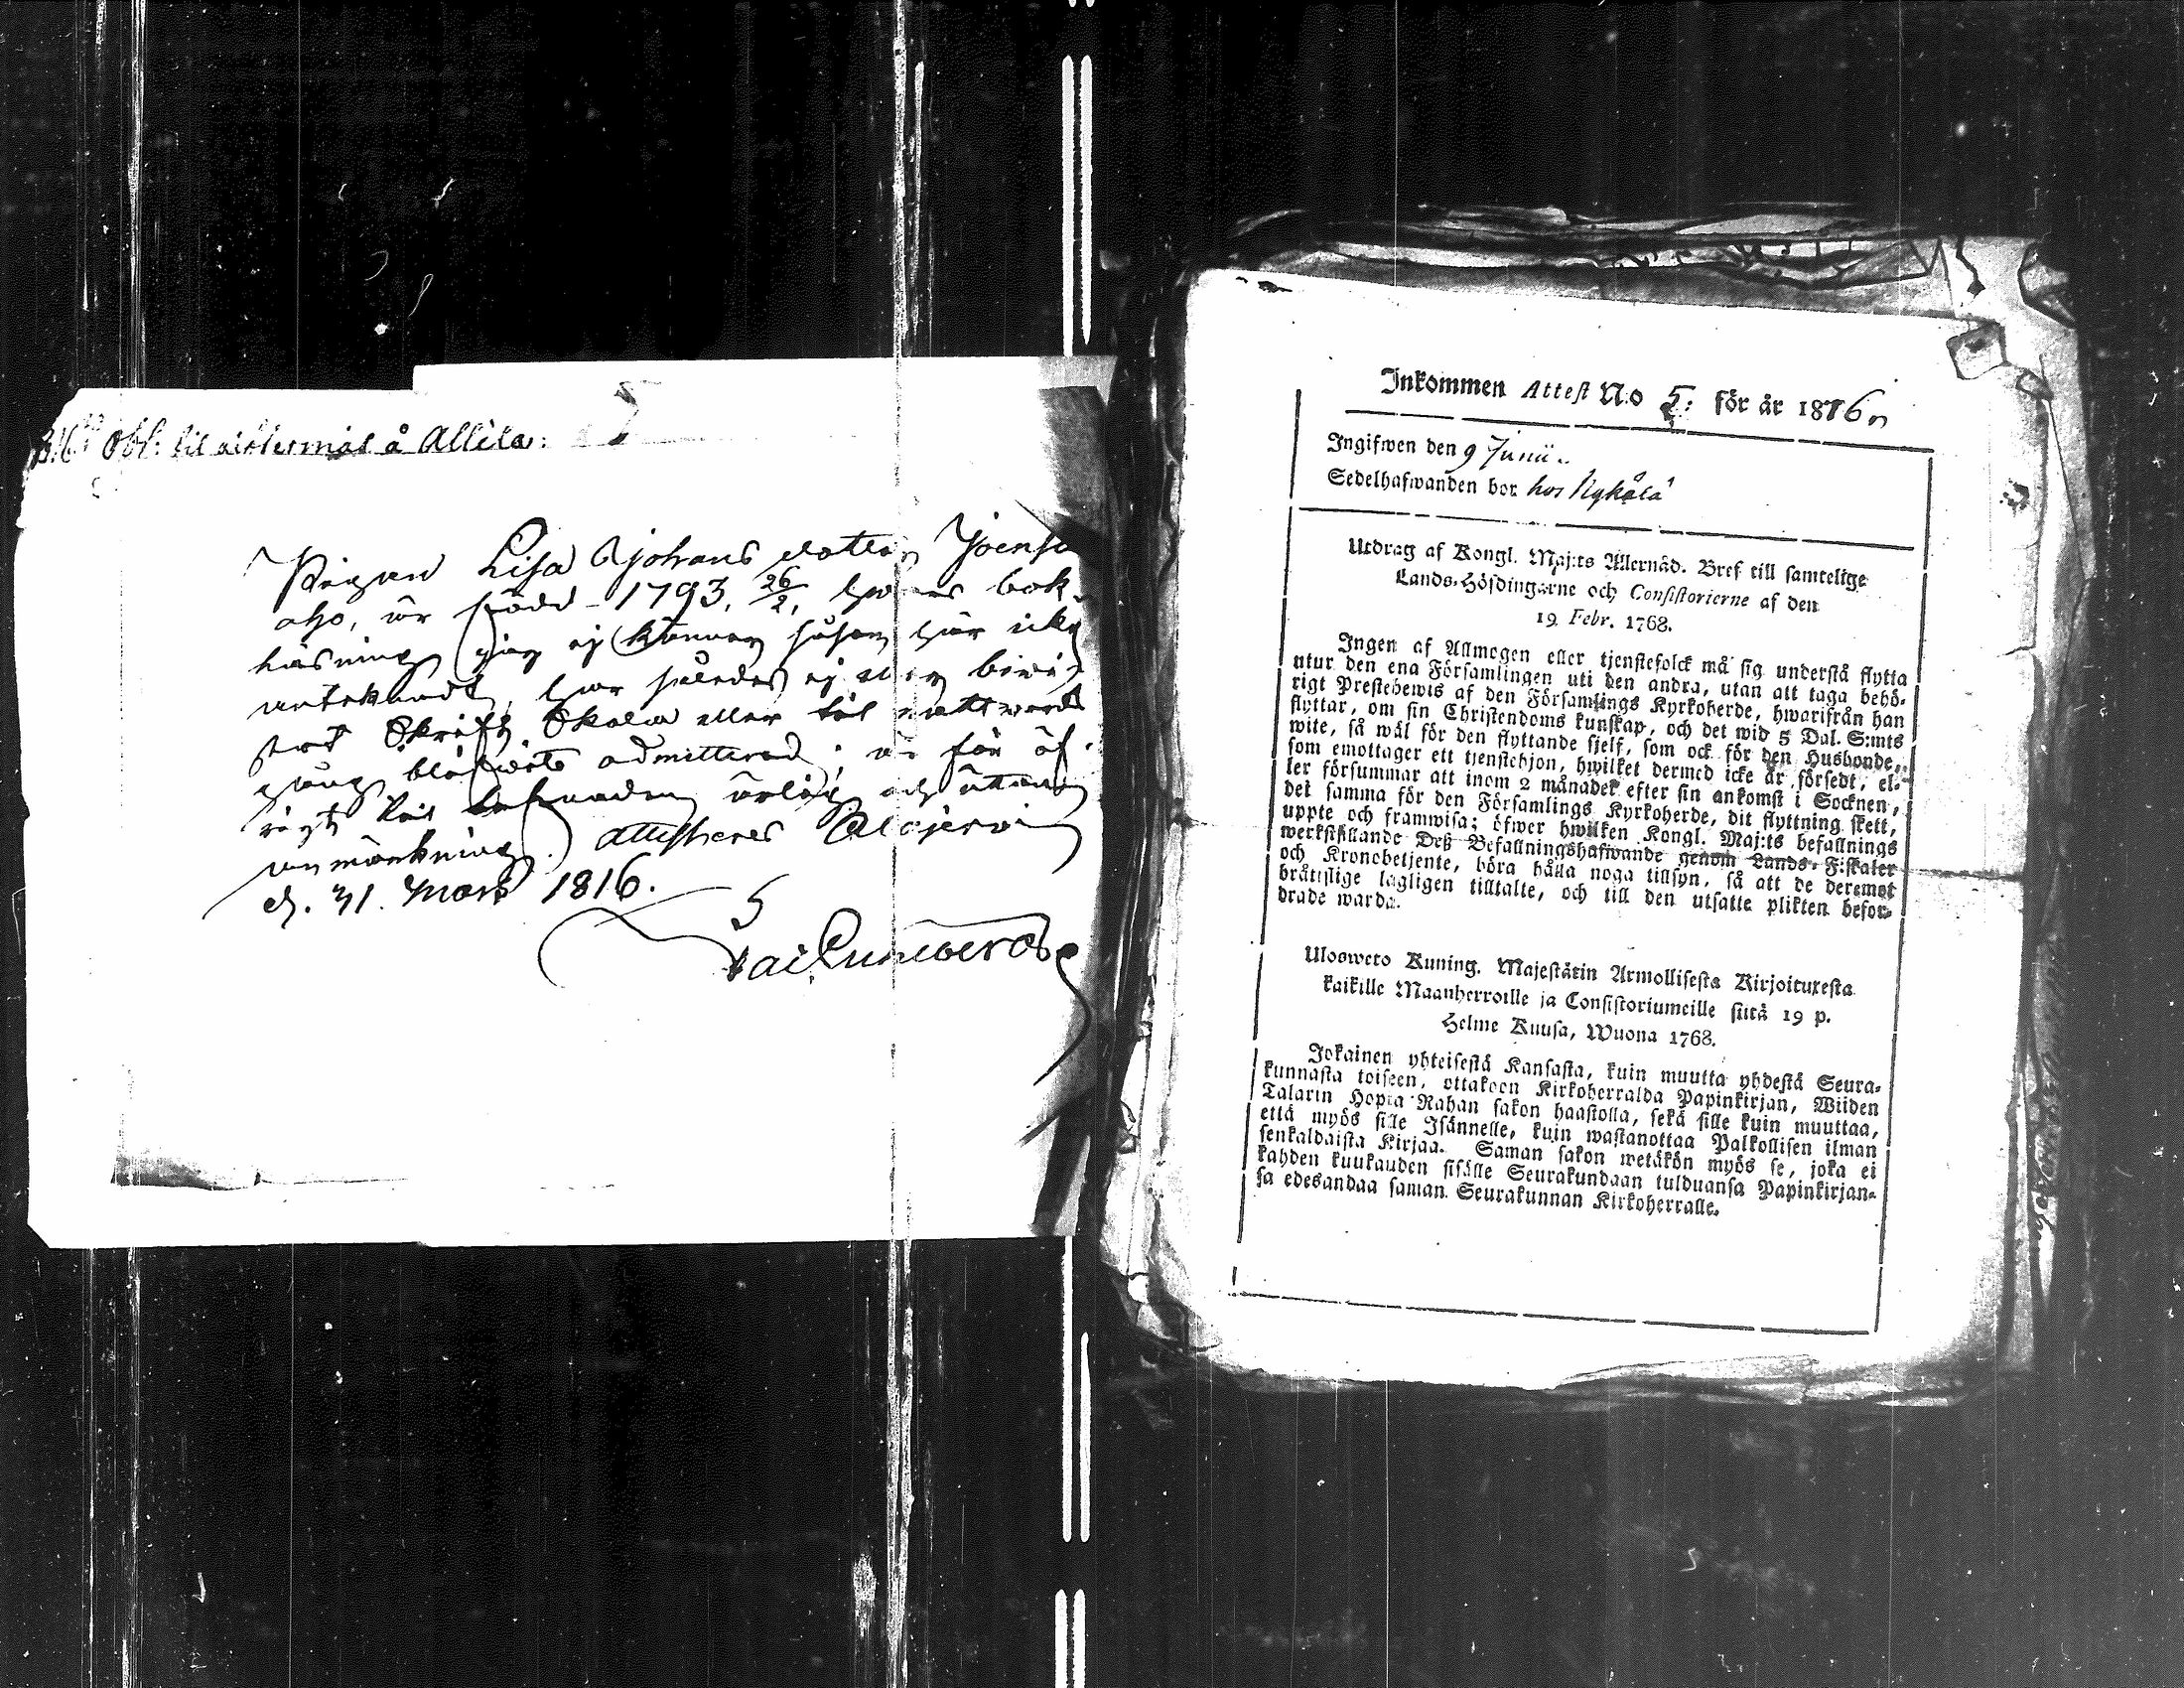 Obl: til å Allila:
Pigan Lisa Johans dotter Joensu
aho, är född 1793, 26/2, hwars bok-
läsning jag ej känner såsom här icke
antecknadt, har således ej
Skrift Skola eller till nattwards
gång admitterad; är för öf-
rigt till lefnaden ärlig och utan
anmärkning. attesteras Alajerwi
d. 31. Mars 1816.
Inkommen Attest No 5: för år 1816
Ingifwen den 9 Junii
Sedelhafwanden bor hos Nykälä
Utdrag af Kongl. Maj:ts Allernåd. Bref till samtelige
Lands-Höfdingarne och Consistorierne af den
19 Febr. 1768.
Ingen af Allmogen eller tjenstefolck må sig understå flytta
utur den ena Församlingen uti den andra, utan att taga behö-
rigt Prestebewis af den Församlings Kyrkoherde, hwarifrån han
flyttar, om sin Christendoms kunskap, och det wid 5 Dal. S:mts
wite, så wäl för den flyttande sjelf, som ock för den Husbonde,
som emottager ett tjenstehjon, hwilket dermed icke är försedt, el-
ler försummar att inom 2 månader efter sin ankomst i Socknen,
dei samma för den Församlings Kyrkoherde, dit flyttning skett,
uppte och framwisa; öfwer hwilken Kongl. Maj:ts befallnings
werkställande Deß Befallningshafwande genom Lands-Fiskaler
och Kronobetjente, böra hålla noga tillsyn, så att de deremot
bråttslige lagligen tilltalte, och till den utsatte plikten befor-
drade warda.
Ulosweto Kuning. Majestätin Armollisesta Kirjoituxesta
kaikille Maanherroille ja Consistoriumeille siitä 19 p.
Helme Kuusa, Wuona 1768.
Jokainen yhteisestä Kansasta, kuin muutta yhdestä Seura-
kunnasta toiseen, ottakoon Kirkoherralda Papinkirjan, Wiiden
Talarin Hopia Rahan sakon haastolla, sekä sille kuin muuttaa,
että myös sille Isännelle, kuin wastanottaa Palkollisen ilman
senkaldaista Kirjaa. Saman sakon wetäkön myös se, joka ei
kahden kuukauden sisälle Seurakundaan tulduansa Papinkirjan-
sa edesandaa saman Seurakunnan Kirkoherralle.